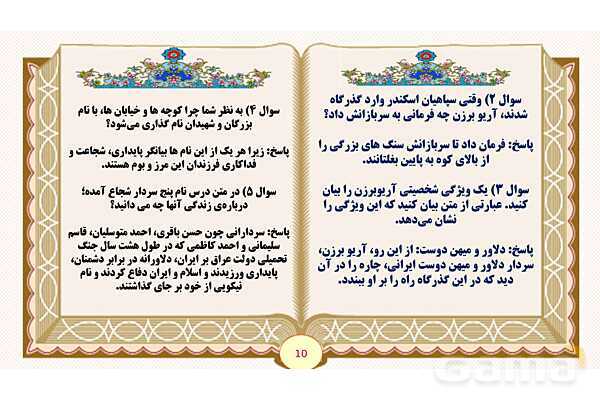 سوال ۲) وقتی سپاهیان اسکندر وارد گذرگاه
شدند، آریو برزن چه فرمانی به سربازانش داد؟
پاسخ: فرمان داد تا سربازانش سنگ های بزرگی را
از بالای کوه به پایین بغلتانند.
سوال ۳) یک ویژگی شخصیتی آریوبرزن را بیان
کنید. عبارتی از متن بیان کنید که این ویژگی را
نشان می‌دهد.
پاسخ: دلاور و میهن دوست: از این رو، آریو برزن،
سردار دلاور و میهن دوست ایرانی، چاره را در آن
دید که در این گذرگاه راه را بر او ببندد.
سوال ۴) به نظر شما چرا کوچه ها و خیابان ها، با نام
بزرگان و شهیدان نام گذاری می‌شود؟
پاسخ: زیرا هر یک از این نام ها بیانگر پایداری، شجاعت و
فداکاری فرزندان این مرز و بوم هستند.
سوال ۵) در متن درس نام پنج سردار شجاع آمده؛
درباره‌ی زندگی آنها چه می دانید؟
پاسخ: سردارانی چون حسن باقری، احمد متوسلیان، قاسم
سلیمانی و احمد کاظمی که در طول هشت سال جنگ
تحمیلی دولت عراق بر ایران، دلاورانه در برابر دشمنان،
پایداری ورزیدند و اسلام و ایران دفاع کردند و نام
نیکویی از خود بر جای گذاشتند.
10
Gama